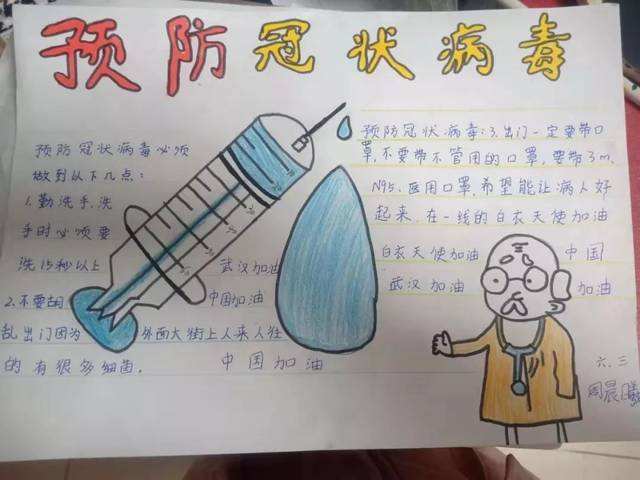 预防冠状病毒
预防冠状病毒必须
做到以下几点:
1.勤洗手,洗
手时必须要
洗15秒以上
2.不要胡
乱出门因为
外面大街上人来人往
的有很多细菌.
武汉加油
中国加油
中国加油
预防冠状病毒:3.出门一定要带口
罩,不要带不管用的口罩,要带3m、
N95、医用口罩,希望能让病人好
起来.在一线的白衣天使加油
白衣天使加油
中国
武汉加油
加油
六.三
周晨